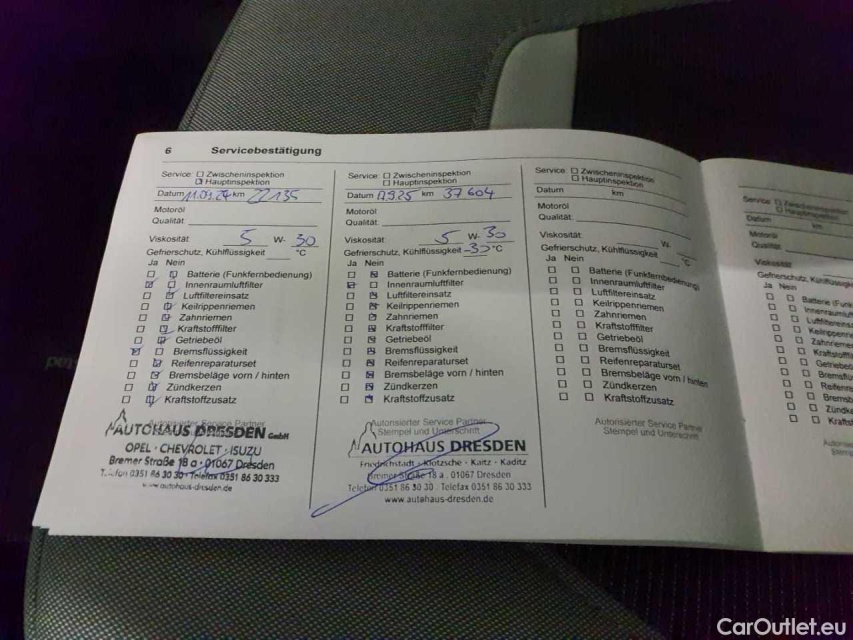 6 Servicebestätigung
Service: Zwischeninspektion
Hauptinspektion
Datum km 22135
Motoröl
Qualität:
Viskosität 5 W- 30
Gefrierschutz, Kühlflüssigkeit °C
Ja Nein
Batterie (Funkfernbedienung)
Innenraumluftfilter
Luftfiltereinsatz
Keilrippenriemen
Zahnriemen
Kraftstofffilter
Getriebeöl
Bremsflüssigkeit
Reifenreparaturset
Bremsbeläge vorn / hinten
Zündkerzen
Kraftstoffzusatz
AUTOHAUS DRESDEN GmbH
OPEL · CHEVROLET · ISUZU
Bremer Straße 18 a · 01067 Dresden
Telefon 0351 86 30 30 · Telefax 0351 86 30 333
www.autohaus-dresden.de
Service: Zwischeninspektion
Hauptinspektion
Datum km 37604
Motoröl
Qualität:
Viskosität 5 W- 30
Gefrierschutz, Kühlflüssigkeit °C
Ja Nein
Batterie (Funkfernbedienung)
Innenraumluftfilter
Luftfiltereinsatz
Keilrippenriemen
Zahnriemen
Kraftstofffilter
Getriebeöl
Bremsflüssigkeit
Reifenreparaturset
Bremsbeläge vorn / hinten
Zündkerzen
Kraftstoffzusatz
Autorisierter Service Partner
Stempel und Unterschrift
AUTOHAUS DRESDEN
Friedrichstadt · Klotzsche · Kaitz · Kaditz
Bremer Straße 18 a . 01067 Dresden
Telefon 0351 86 30 30 . Telefax 0351 86 30 333
www.autohaus-dresden.de
Service: Zwischeninspektion
Hauptinspektion
Datum km
Motoröl
Qualität:
Viskosität W-
Gefrierschutz, Kühlflüssigkeit °C
Ja Nein
Batterie (Funkfernbedienung)
Innenraumluftfilter
Luftfiltereinsatz
Keilrippenriemen
Zahnriemen
Kraftstofffilter
Getriebeöl
Bremsflüssigkeit
Reifenreparaturset
Bremsbeläge vorn / hinten
Zündkerzen
Kraftstoffzusatz
Autorisierter Service Partner
Stempel und Unterschrift
Service: Zwischeninspektion
Hauptinspektion
Datum km
Motoröl
Qualität:
Viskosität
Gefrierschutz,
Ja Nein
CarOutlet.eu